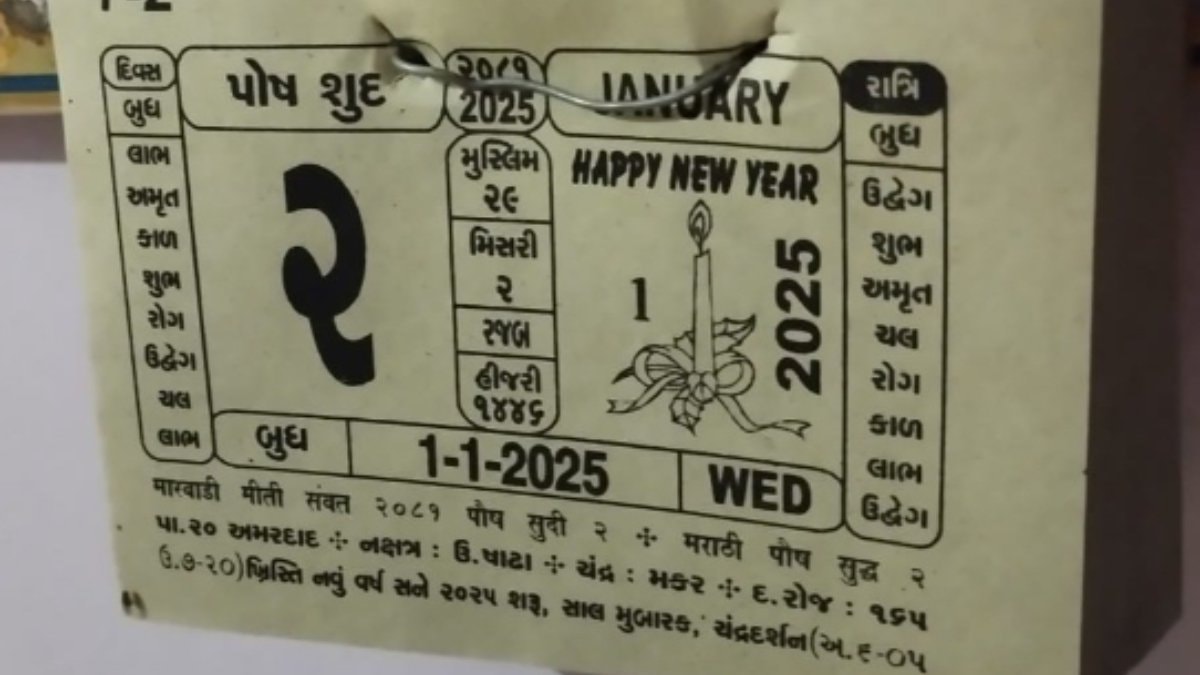 દિવસ
બુધ
લાભ
અમૃત
કાળ
શુભ
રોગ
ઉદ્વેગ
ચલ
લાભ
પોષ શુદ
૨
૨૦૮૧
2025
મુસ્લિમ
૨૯
મિસરી
૨
રજબ
હીજરી
૧૪૪૬
JANUARY
HAPPY NEW YEAR
1
2025
રાત્રિ
બુધ
ઉદ્વેગ
શુભ
અમૃત
ચલ
રોગ
કાળ
લાભ
ઉદ્વેગ
બુધ 1-1-2025 WED
मारवाडी मीती संवत २०८१ पौष सुदी २ ✢ मराठी पौष सुद्ध २
પા.૨૦ અમરદાદ ✢ નક્ષત્ર : ઉ.ષાઢા ✢ ચંદ્ર : મકર ✢ દ.રોજ : ૧૬૫
ઉ.૭-૨૦)ખ્રિસ્તિ નવું વર્ષ સને ૨૦૨૫ શરૂ, સાલ મુબારક, ચંદ્રદર્શન(અ.૬-૦૫